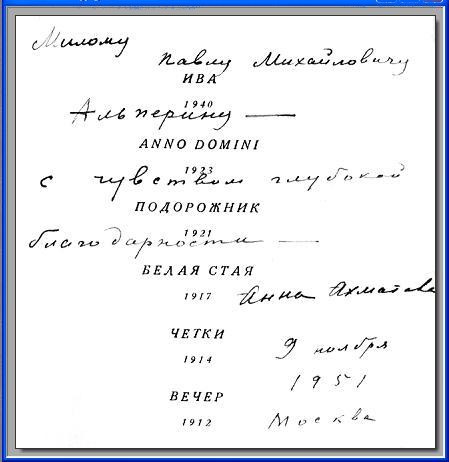 Милому
Павлу Михайловичу
ИВА
1940
Альперину —
ANNO DOMINI
1923
с чувством глубокой
ПОДОРОЖНИК
1921
благодарности —
БЕЛАЯ СТАЯ
1917
Анна Ахматова
ЧЕТКИ
1914
9 ноября
1951
ВЕЧЕР
1912
Москва